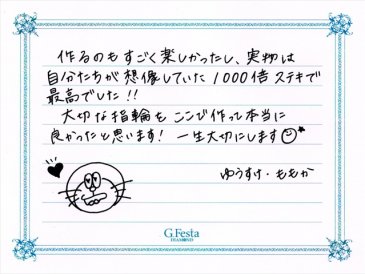 作るのもすごく楽しかったし、実物は
自分たちが想像していた1000倍ステキで
最高でした!!
大切な指輪をここで作って本当に
良かったと思います! 一生大切にします
ゆうすけ・ももか
G.Festa
DIAMOND